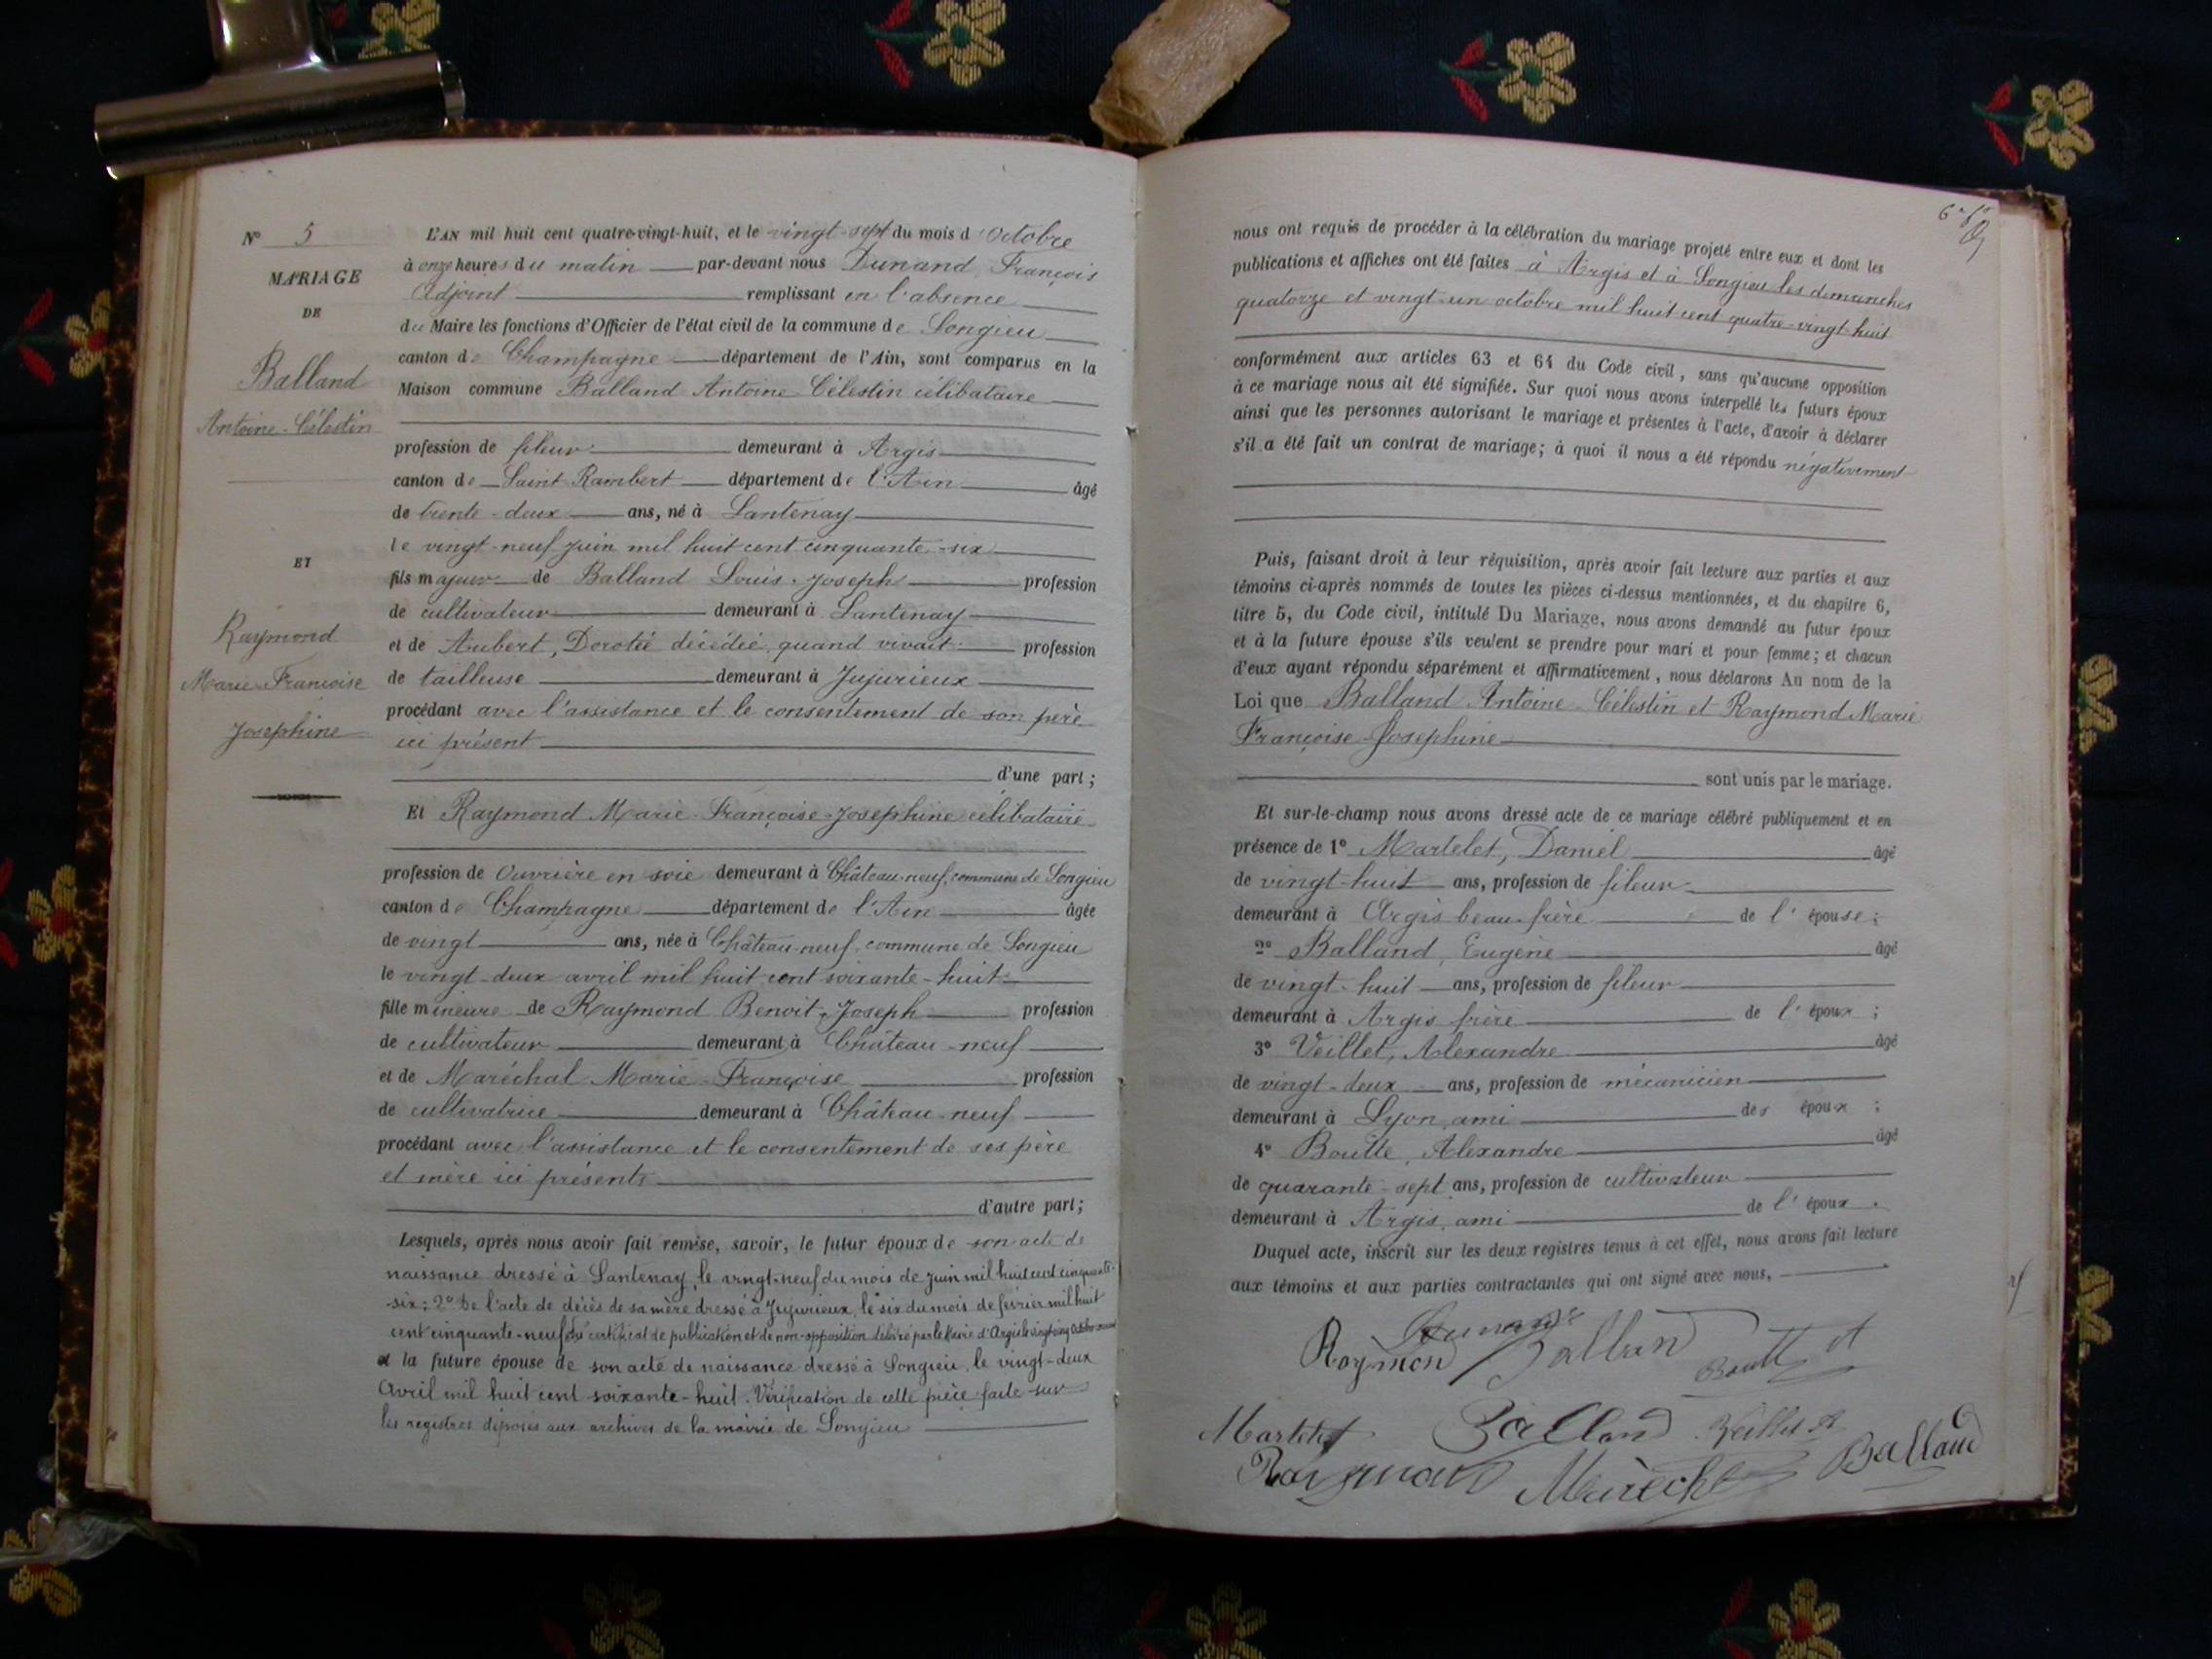 N° 5
MARIAGE
DE
Balland
Antoine-Célestin
ET
Raymond
Marie-Françoise
Josephine
L'AN mil huit cent quatre-vingt-huit, et le vingt-sept du mois d'Octobre
à onze heures du matin par-devant nous Dunand, François
Adjoint remplissant en l'absence
du Maire les fonctions d'Officier de l'état civil de la commune de Songieu
canton de Champagne département de l'Ain, sont comparus en la
Maison commune Balland Antoine-Célestin célibataire
profession de fileur demeurant à Argis
canton de Saint-Rambert département de l'Ain âgé
de trente-deux ans, né à Lantenay
le vingt-neuf juin mil huit cent cinquante-six
fils majeur de Balland Louis-Joseph profession
de cultivateur demeurant à Lantenay
et de Aubert, Dorotéé décédée, quand vivait profession
de tailleuse demeurant à Jujurieux
procédant avec l'assistance et le consentement de son père
ici présent
d'une part;
Et Raymond Marie-Françoise-Josephine célibataire
profession de Ouvrière en soie demeurant à Château-neuf, commune de Songieu
canton de Champagne département de l'Ain âgée
de vingt ans, née à Château-neuf, commune de Songieu
le vingt-deux avril mil huit cent soixante-huit
fille mineure de Raymond Benoit-Joseph profession
de cultivateur demeurant à Château-neuf
et de Maréchal Marie-Françoise profession
de cultivatrice demeurant à Château-neuf
procédant avec l'assistance et le consentement de ses père
et mère ici présents
d'autre part;
Lesquels, après nous avoir fait remise, savoir, le futur époux de son acte de
naissance dressé à Lantenay, le vingt-neuf du mois de juin mil huit cent cinquante-
-six; 2° De l'acte de décès de sa mère dressé à Jujurieux, le six du mois de février mil huit
cent cinquante-neuf certificat de publication et de non-opposition délivré par le Maire d'Argis le vingt-cinq Octobre
et la future épouse de son acte de naissance dressé à Songieu, le vingt-deux
Avril mil huit cent soixante-huit. Vérification de cette pièce faite sur
les registres déposés aux archives de la mairie de Songieu
nous ont requis de procéder à la célébration du mariage projeté entre eux et dont les
publications et affiches ont été faites à Argis et à Songieu les dimanches
quatorze et vingt-un octobre mil huit cent quatre-vingt-huit
conformément aux articles 63 et 64 du Code civil, sans qu'aucune opposition
à ce mariage nous ait été signifiée. Sur quoi nous avons interpellé les futurs époux
ainsi que les personnes autorisant le mariage et présentes à l'acte, d'avoir à déclarer
s'il a été fait un contrat de mariage; à quoi il nous a été répondu négativement
Puis, faisant droit à leur réquisition, après avoir fait lecture aux parties et aux
témoins ci-après nommés de toutes les pièces ci-dessus mentionnées, et du chapitre 6,
titre 5, du Code civil, intitulé Du Mariage, nous avons demandé au futur époux
et à la future épouse s'ils veulent se prendre pour mari et pour femme; et chacun
d'eux ayant répondu séparément et affirmativement, nous déclarons Au nom de la
Loi que Balland Antoine-Célestin et Raymond Marie
Françoise-Josephine
sont unis par le mariage.
Et sur-le-champ nous avons dressé acte de ce mariage célébré publiquement et en
présence de 1° Martelet, Daniel âgé
de vingt-huit ans, profession de fileur
demeurant à Argis beau-frère de l'épouse;
2° Balland, Eugène âgé
de vingt-huit ans, profession de fileur
demeurant à Argis frère de l'époux;
3° Veillet, Alexandre âgé
de vingt-deux ans, profession de mécanicien
demeurant à Lyon, ami des époux;
4° Boutte, Alexandre âgé
de quarante-sept ans, profession de cultivateur
demeurant à Argis, ami de l'époux.
Duquel acte, inscrit sur les deux registres tenus à cet effet, nous avons fait lecture
aux témoins et aux parties contractantes qui ont signé avec nous.
Dunand
Raymond Balland Boutt A
Martelet Balland Veillet A
Raymond Maréchal Balland